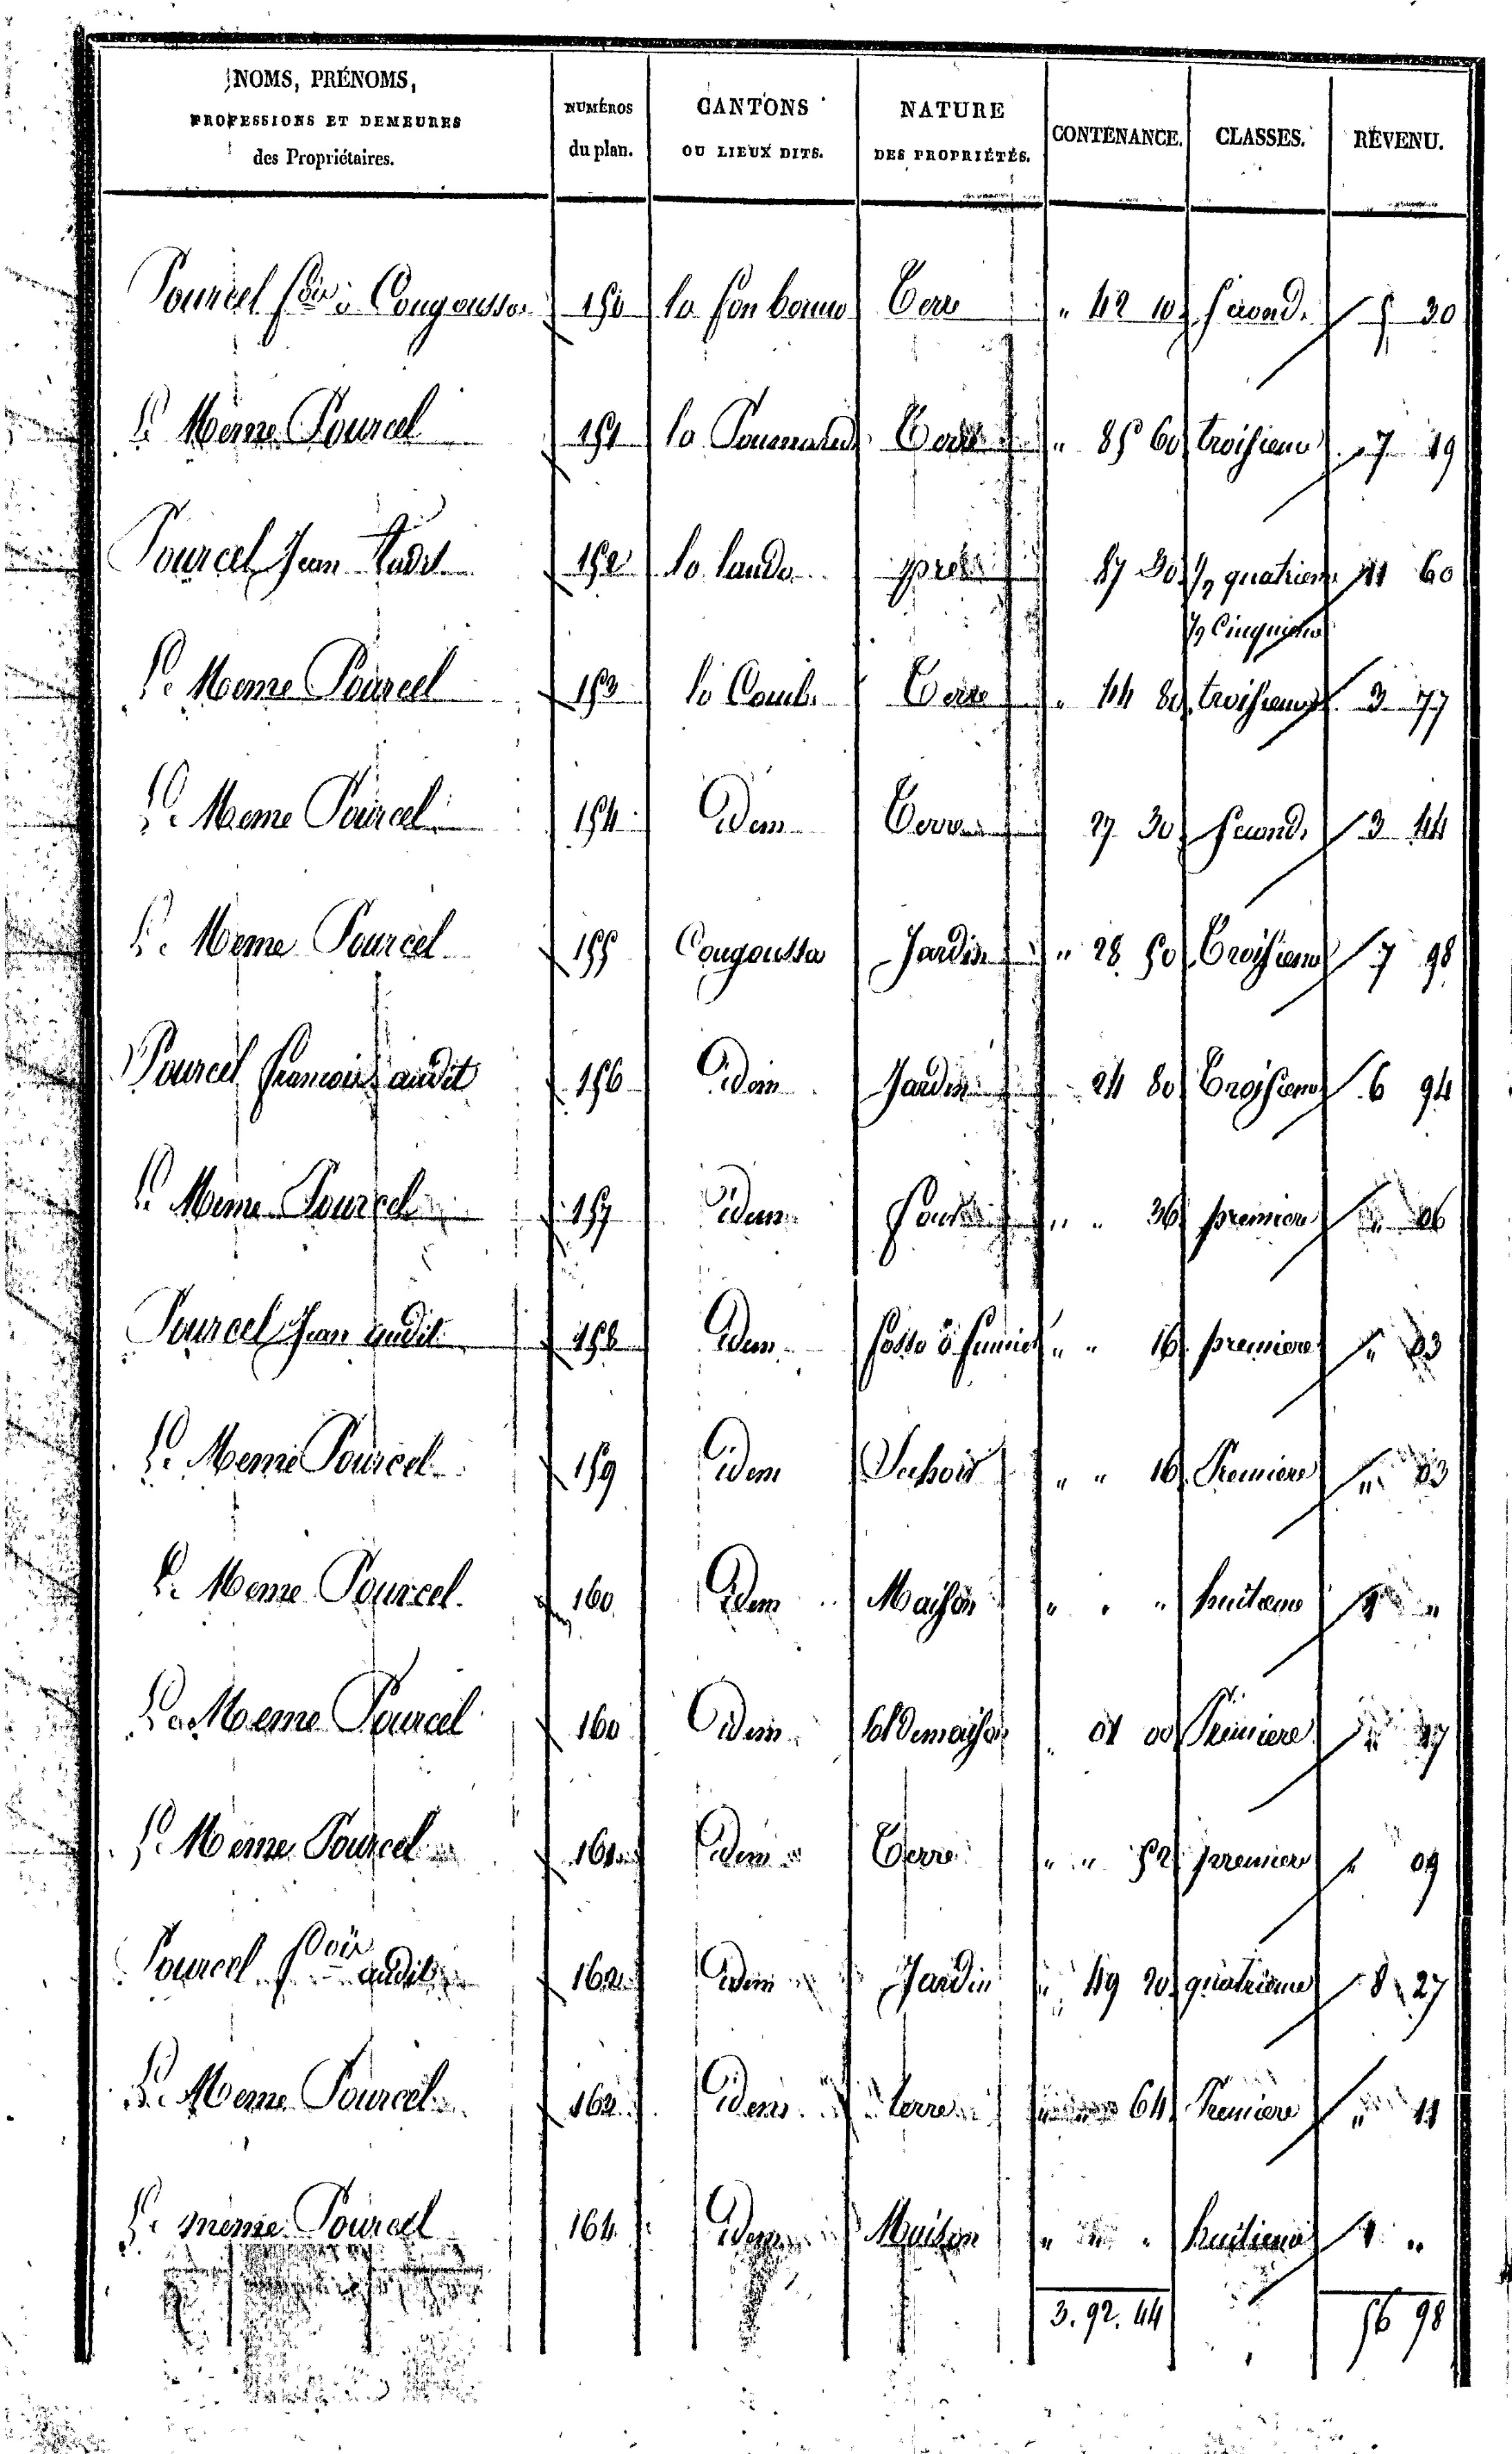 NOMS, PRÉNOMS, PROFESSIONS ET DEMEURES des Propriétaires. NUMÉROS du plan. CANTONS OU LIEUX DITS. NATURE DES PROPRIÉTÉS. CONTENANCE. CLASSES. REVENU.
Pourcel à Cougousse 150 la Terre " 42 10 second. 5 30
le Meme Pourcel 151 la Terre " 85 60 troisieme 7 19
Pourcel Jean audit 152 la lande pres 87 30 1/2 quatrieme 11 60
1/2 Cinquieme
le Meme Pourcel 153 la Combe Terre " 44 80 troisieme 3 77
le Meme Pourcel 154 idem Terre 27 30 second. 3 44
le Meme Pourcel 155 Cougousse Jardin " 28 50 Troisieme 7 98
Pourcel francois audit 156 idem Jardin 24 80 Troisieme 6 94
le Meme Pourcel 157 idem " " 36 premiere " 06
Pourcel Jean audit 158 idem fosse à fumier " " 16 premiere " 03
le Meme Pourcel 159 idem Sechoir " " 16 Premiere " 03
le Meme Pourcel 160 idem Maison " " " huitieme "
le Meme Pourcel 160 idem Sol de maison 01 00 Premiere " 17
le Meme Pourcel 161 idem Terre " " 52 premiere " 09
Pourcel audit 162 idem Jardin " 49 20 quatrieme 8 27
le Meme Pourcel 162 idem terre 64 Premiere " 11
le meme Pourcel 164 idem Maison " " " huitieme "
3. 92. 44 56 98